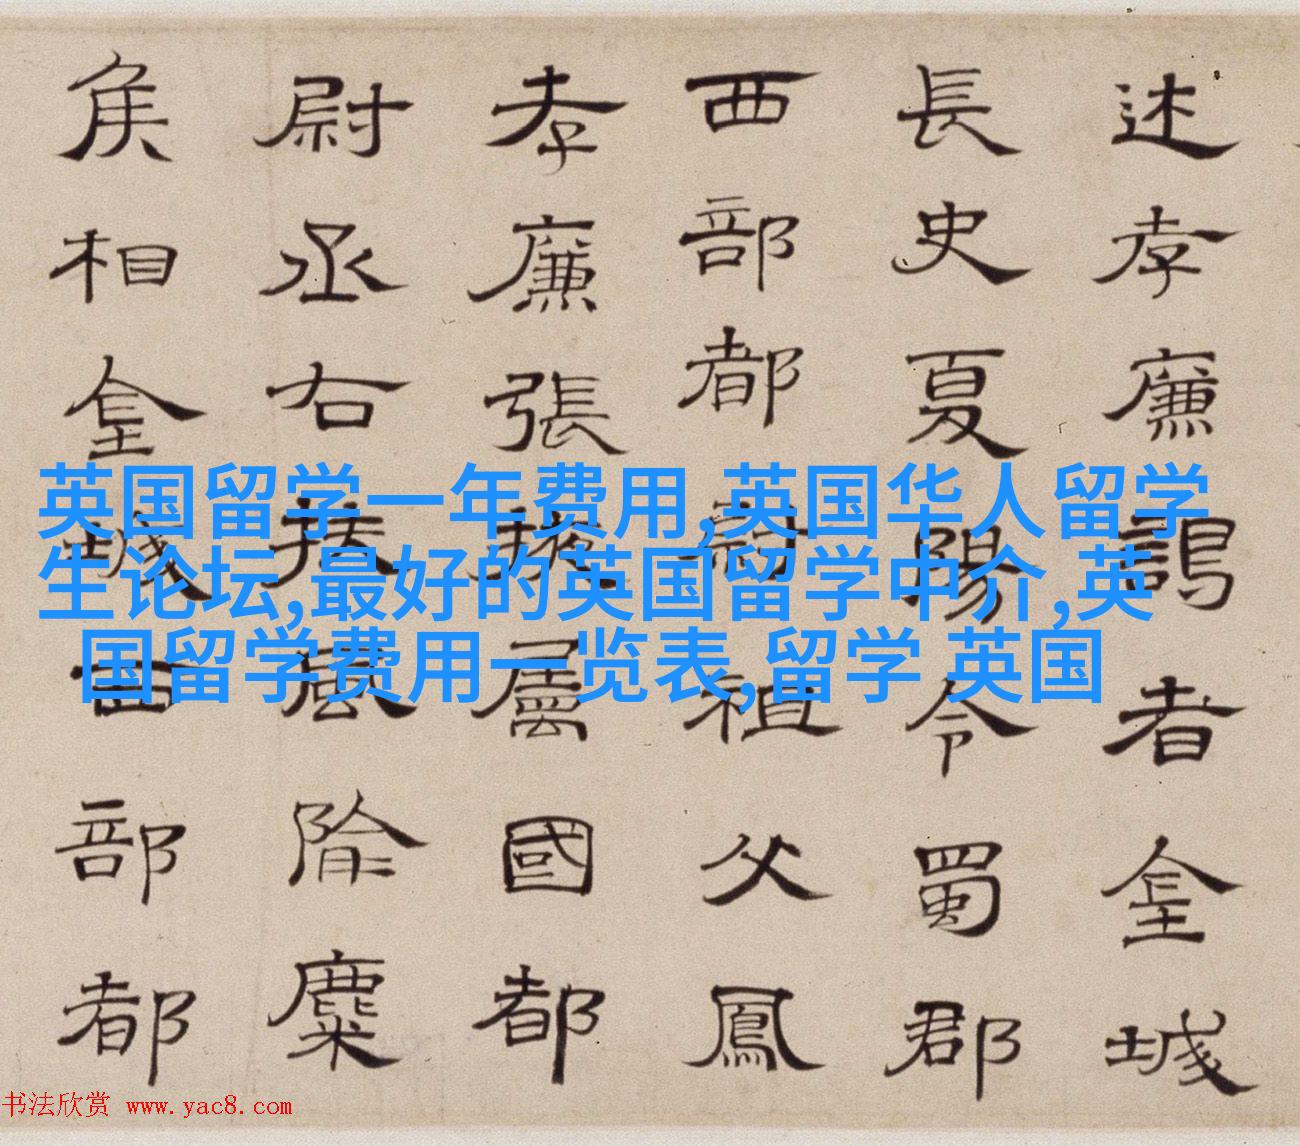 述孝廉謁者金城
長史夏陽令蜀郡
西部都尉祖父鳳
孝廉張掖屬國都
尉丞右扶風隃麋
矦相金城西部都
英国留学一年费用,英国华人留学
生论坛,最好的英国留学中介,英
国留学费用一览表,留学 英国
书法欣赏 www.yac8.com